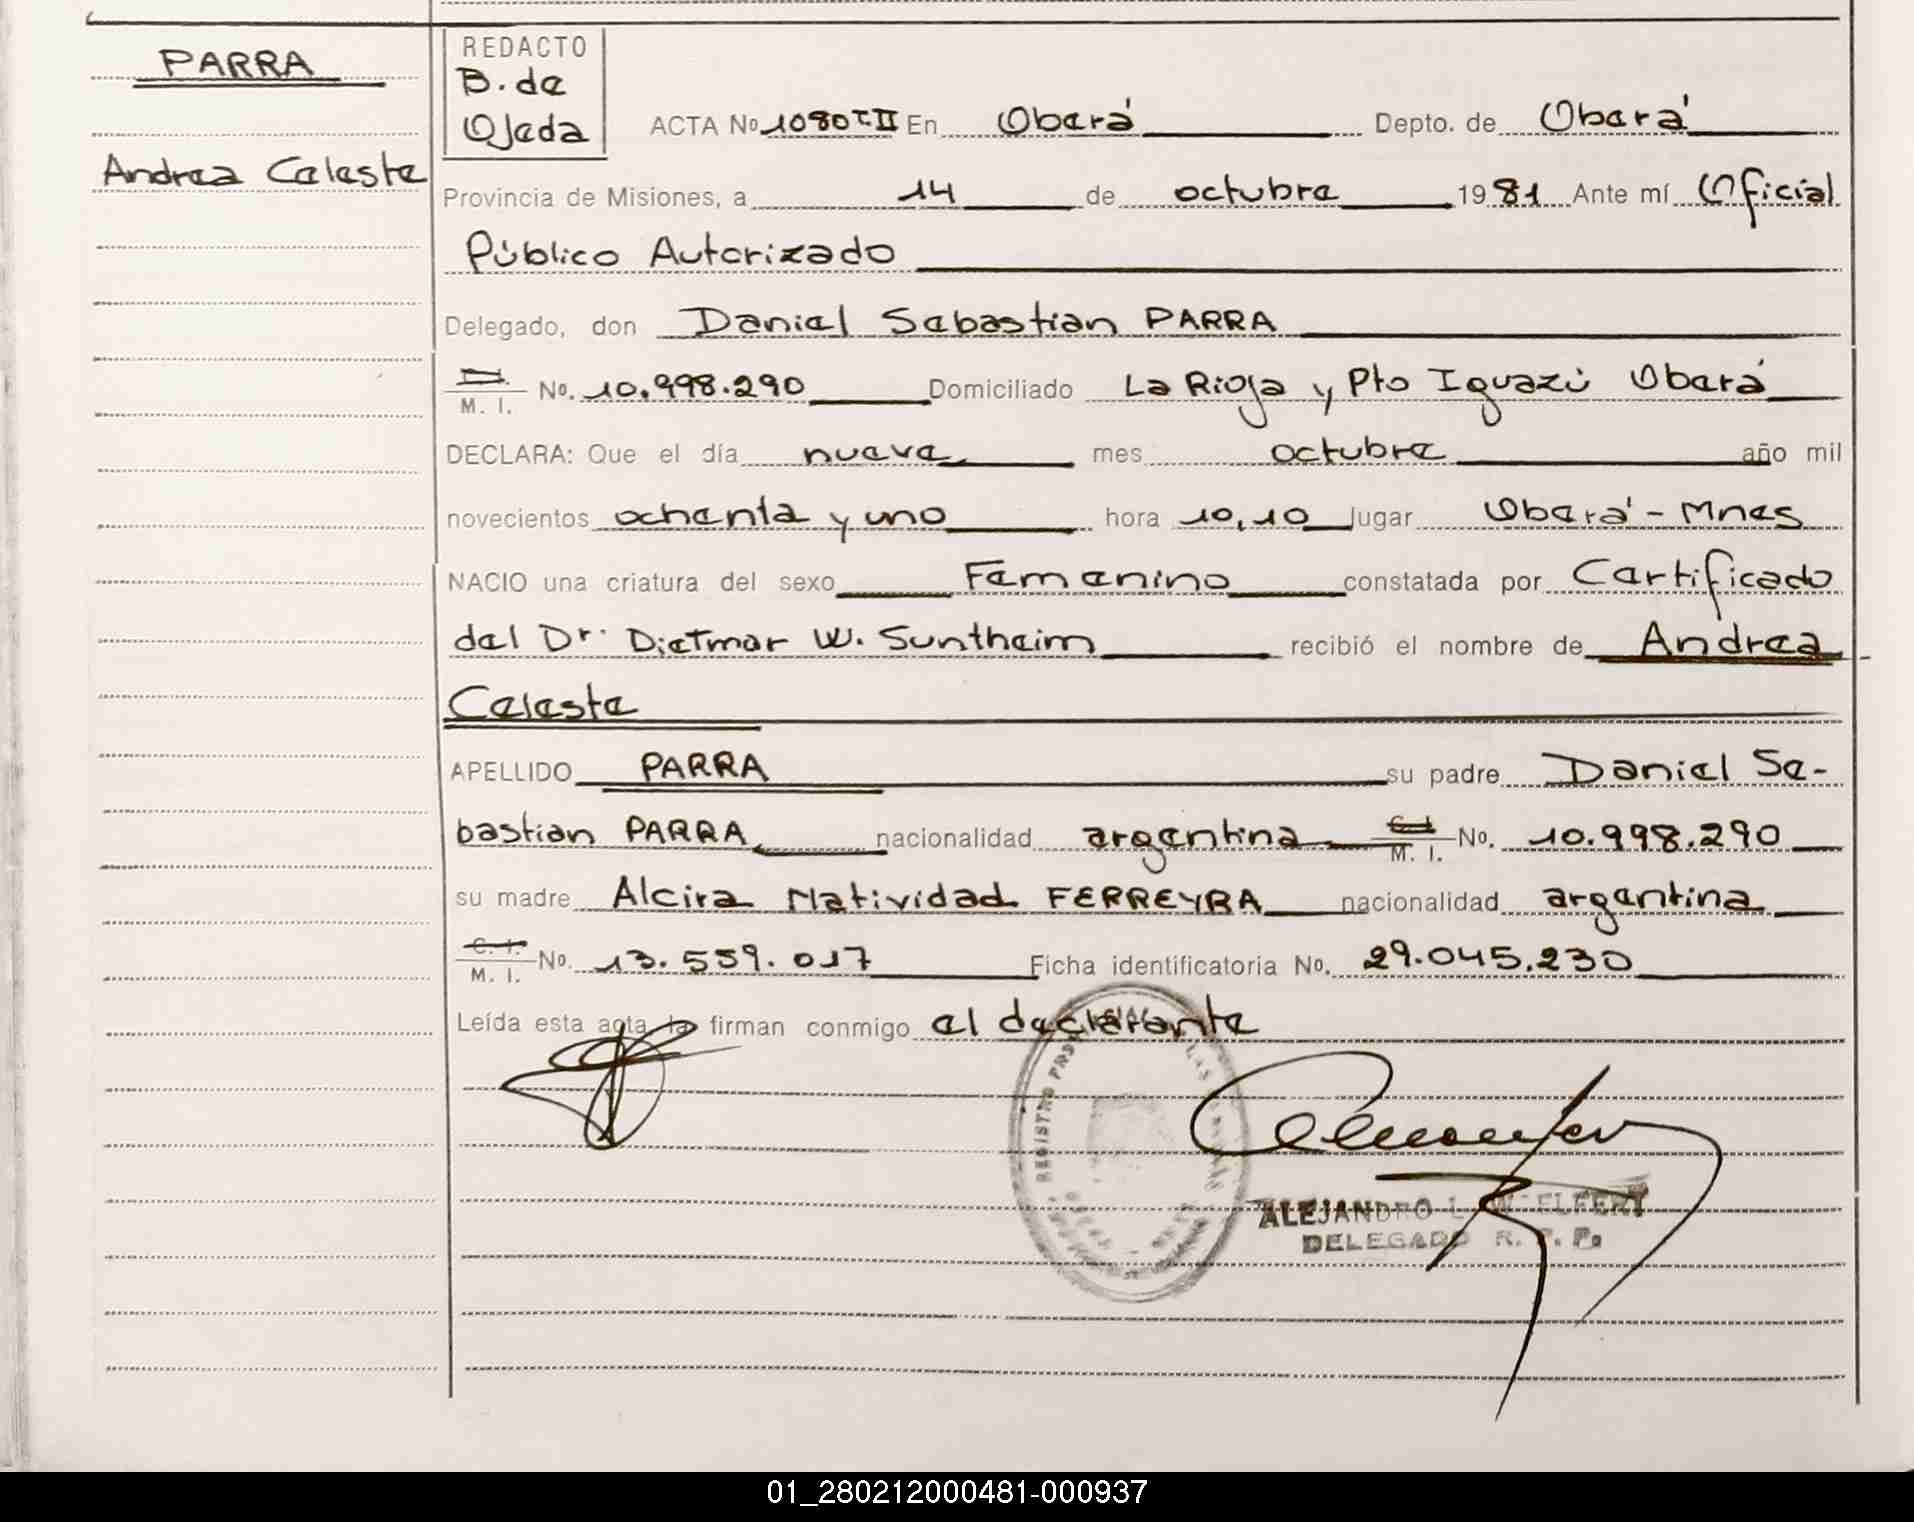 PARRA
Andrea Celeste
REDACTO
B. de
Ojeda
ACTA No 1080 T.II En Oberá Depto. de Oberá
Provincia de Misiones, a 14 de octubre 1981 Ante mí Oficial
Público Autorizado
Delegado, don Daniel Sebastian PARRA
M. I. No. 10.998.290 Domiciliado La Rioja y Pto Iguazú Oberá
DECLARA: Que el día nueve mes octubre año mil
novecientos ochenta y uno hora 10,10 lugar Oberá - Mnes
NACIO una criatura del sexo Femenino constatada por Certificado
del Dr. Dietmar W. Suntheim recibió el nombre de Andrea
Celeste
APELLIDO PARRA su padre Daniel Se-
bastian PARRA nacionalidad argentina C. I. M. I. No. 10.998.290
su madre Alcira Natividad FERREYRA nacionalidad argentina
C. I. M. I. No. 13.559.017 Ficha identificatoria No. 29.045.230
Leída esta acta la firman conmigo el declarante
REGISTRO
ALEJANDRO L. WELFERT
DELEGADO R. P. P.
01_280212000481-000937